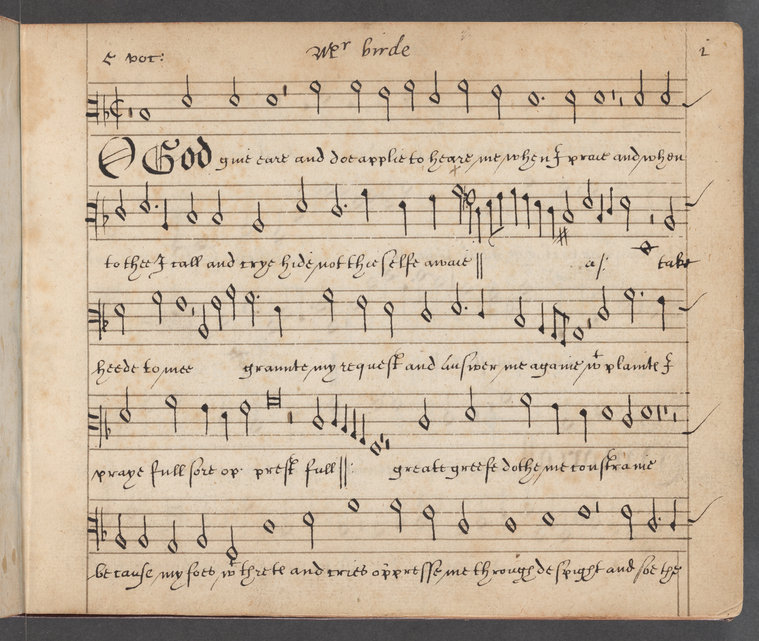 5 voc: Mr birde 1
O God giue eare and doe applie to heare me when I praie and when
to thee I call and crye hide not thie selfe awaie || as: take
heede to mee graunte my request and answer me againe wt plainte I
praye full sore op prest full ||: greate greefe dothe me constraine
because my foes wt threte and cries oppresse me through despight and soe the